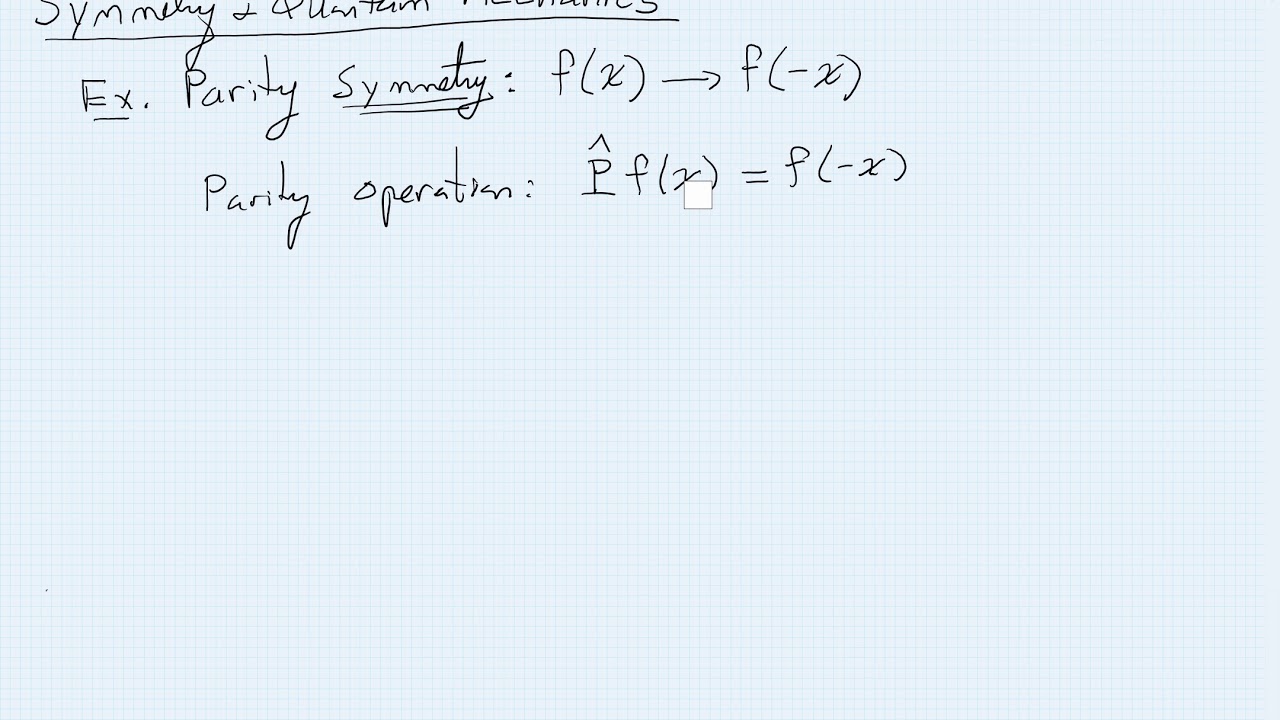 Symmetry & Quantum Mechanics
Ex. Parity Symmetry: f(x) → f(-x)
Parity operation: P̂ f(x) = f(-x)